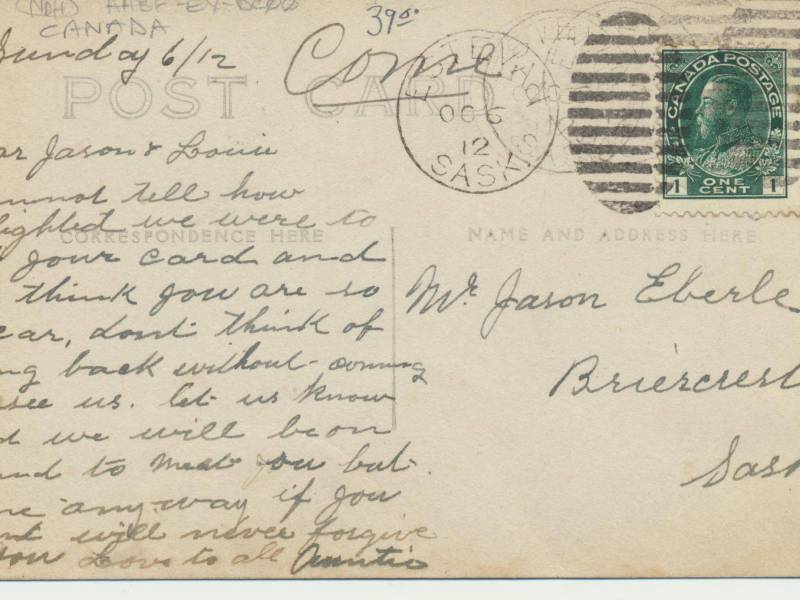 CANADA
39.00
Sunday 6/12
Come
POST CARD
ESTEVAN
OC 6
12
SASK
CANADA POSTAGE
1 ONE CENT 1
ar Jason & Louie
nnot tell how
lighted we were to
CORRESPONDENCE HERE
your card and
think you are so
ear, dont think of
ng back without coming
see us. let us know
d we will be on
and to meet you but
me anyway if you
nt will never forgive
you Love to all Auntie
NAME AND ADDRESS HERE
Mr Jason Eberle
Briercrest
Sask